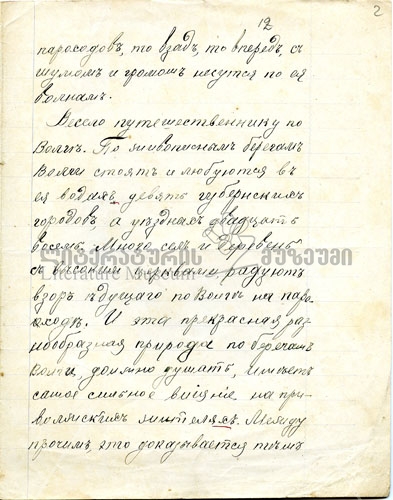 12
2
пароходовъ, то взадъ, то впередъ, съ
шумомъ и громомъ несутся по ея
волнамъ.
Весело путешественнику по
Волгѣ. По живописнымъ берегамъ
Волги стоятъ и любуются въ
ея водахъ девять губернскихъ
городовъ, а уѣздныхъ двадцать
восемь. Много селъ и деревень
ლიტერატურის მუზეუმი
Literature Museum
съ высокими церквами радуютъ
взоръ ѣдущаго по Волгѣ на паро-
ходѣ. И эта прекрасная раз-
нообразная природа по берегамъ
Волги, должно думать, имѣетъ
самое сильное вліяніе на при-
волжскихъ жителяхъ. Между
прочимъ, это доказывается тѣмъ